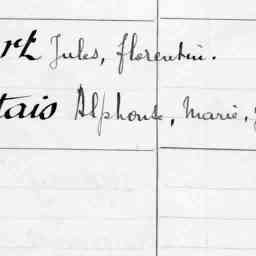 rt Jules, Florentin.
tais Alphonse, Marie,